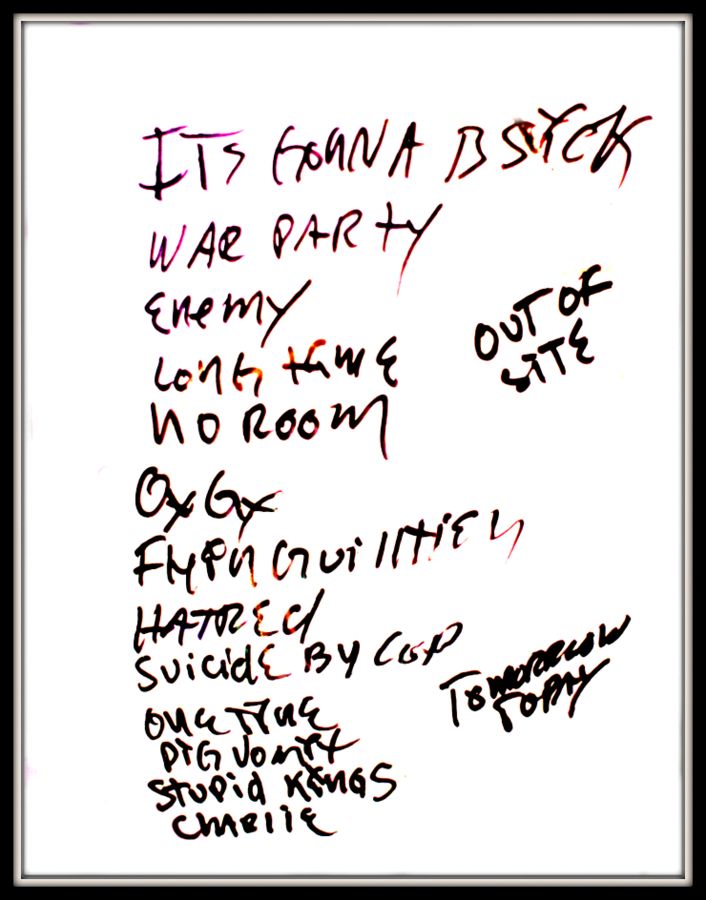 ITS GONNA B SICK
WAR PARTY
ENEMY
LONG TIME
OUT OF
SITE
NO ROOM
OxGx
FLYIN
HATRED
SUICIDE BY COP
TOMORROW
TODAY
ONE TIME
PIG VOMIT
STUPID KINGS
CHARLIE